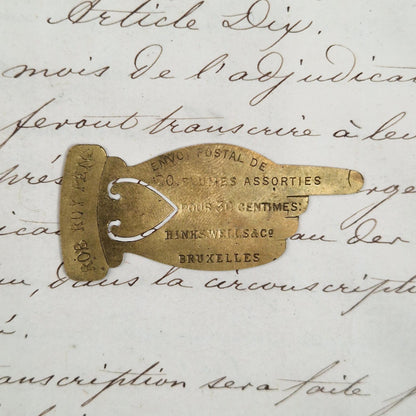 Article Dix.
mois de l'adjudica
feront transcrire à leu
près
ENVOI POSTAL DE
PLUMES ASSORTIES
POUR 30 CENTIMES.
HINKS WELLS & Co
BRUXELLES
ROB ROY PEN
au der
dans la circonscripti
é.
anscription sera faite